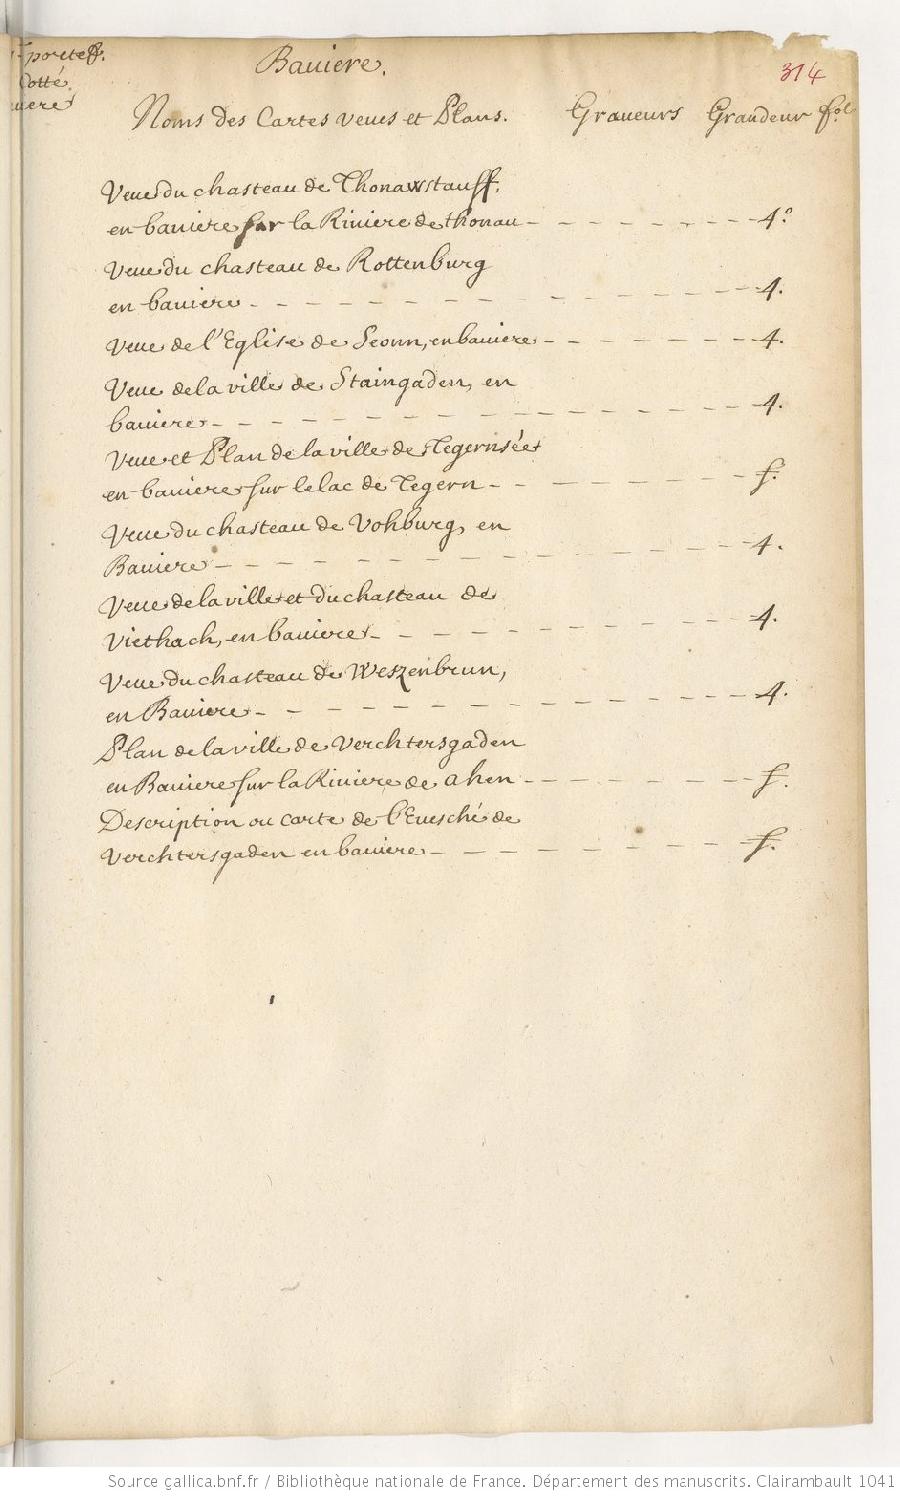 portef.
Cotté
Baviere.
314
Noms des Cartes veues et Plans. Graveurs Grandeur fol
Veue du chasteau de Thonawstauff.
en baviere sur la Riviere de thonau - 4.°
Veue du chasteau de Rottenburg
en baviere - 4.
Veue de l'Eglise de Seonn, en baviere - 4.
Veue de la ville de Staingaden, en
baviere - 4.
Veue et Plan de la ville de Tegernsée
en baviere sur le lac de Tegern - f.
Veue du chasteau de Vohburg, en
Baviere - 4.
Veue de la ville et du chasteau de
Viethach, en baviere - 4.
Veue du chasteau de Weszenbrun,
en Baviere - 4.
Plan de la ville de Verchtersgaden
en Baviere sur la Riviere de ahen - f.
Description ou carte de l'Evesché de
Verchtersgaden en baviere - f.
Source gallica.bnf.fr / Bibliothèque nationale de France. Département des manuscrits. Clairambault 1041